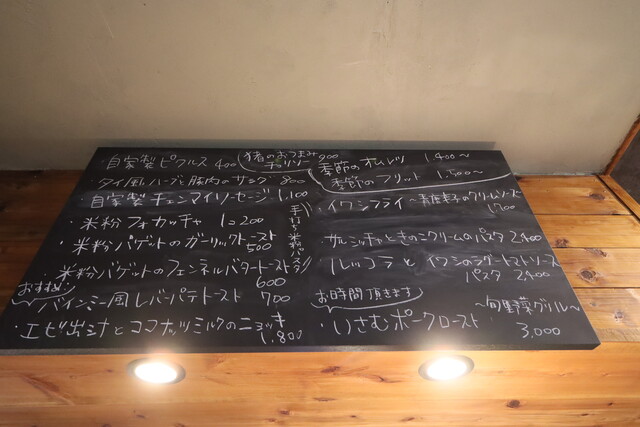 ・自家製ピクルス 400
タイ風ハーブと豚肉のサラダ 800
・自家製チェンマイソーセージ 1,100
・米粉フォカッチャ 1コ200
・米粉バゲットのガーリックトースト 500
・米粉バゲットのフェンネルバタートースト 600
おすすめ!
バインミー風レバーパテトースト 700
・エビ出汁とココナッツミルクのニョッキ 1,800
猪のおつまみ チョリソー 900
季節のオムレツ 1,400〜
季節のフリット 1,500〜
手打ち米粉パスタ
・イワシフライ 〜のクリームソース 1700
サルシッチャときのこクリームのパスタ 2400
ルッコラと イワシのラグートマトソースパスタ 2,400
お時間頂きます
・いさむポークロースト 〜旬野菜グリル〜 3,000